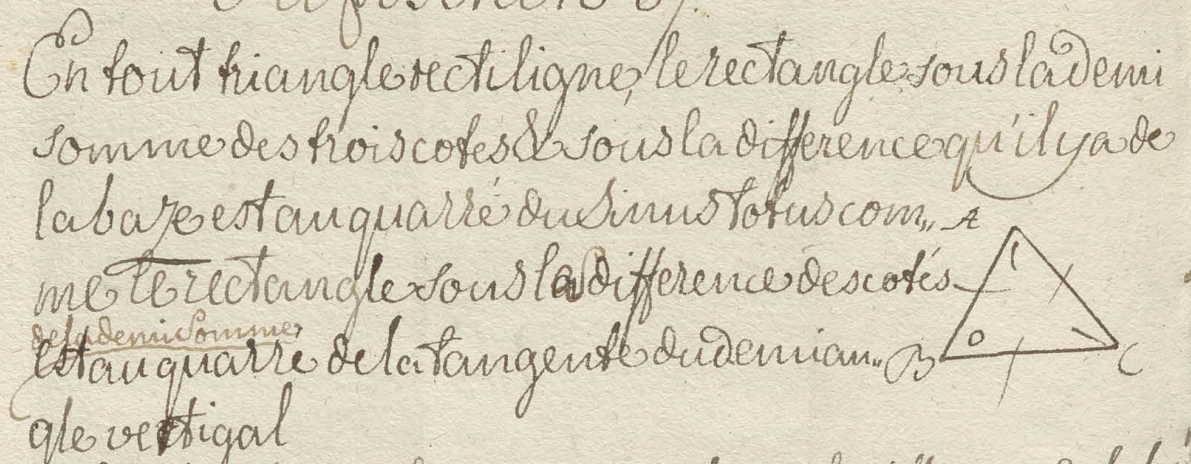 En tout triangle rectiligne, le rectangle sous la demi
somme des trois cotés & sous la difference qu'il y a de
la baze est au quarré du Sinus totus com„
me le rectangle sous la difference des cotés
de la demi Somme
Est au quarré de la tangente du demi an„
gle vertigal
A
B
C